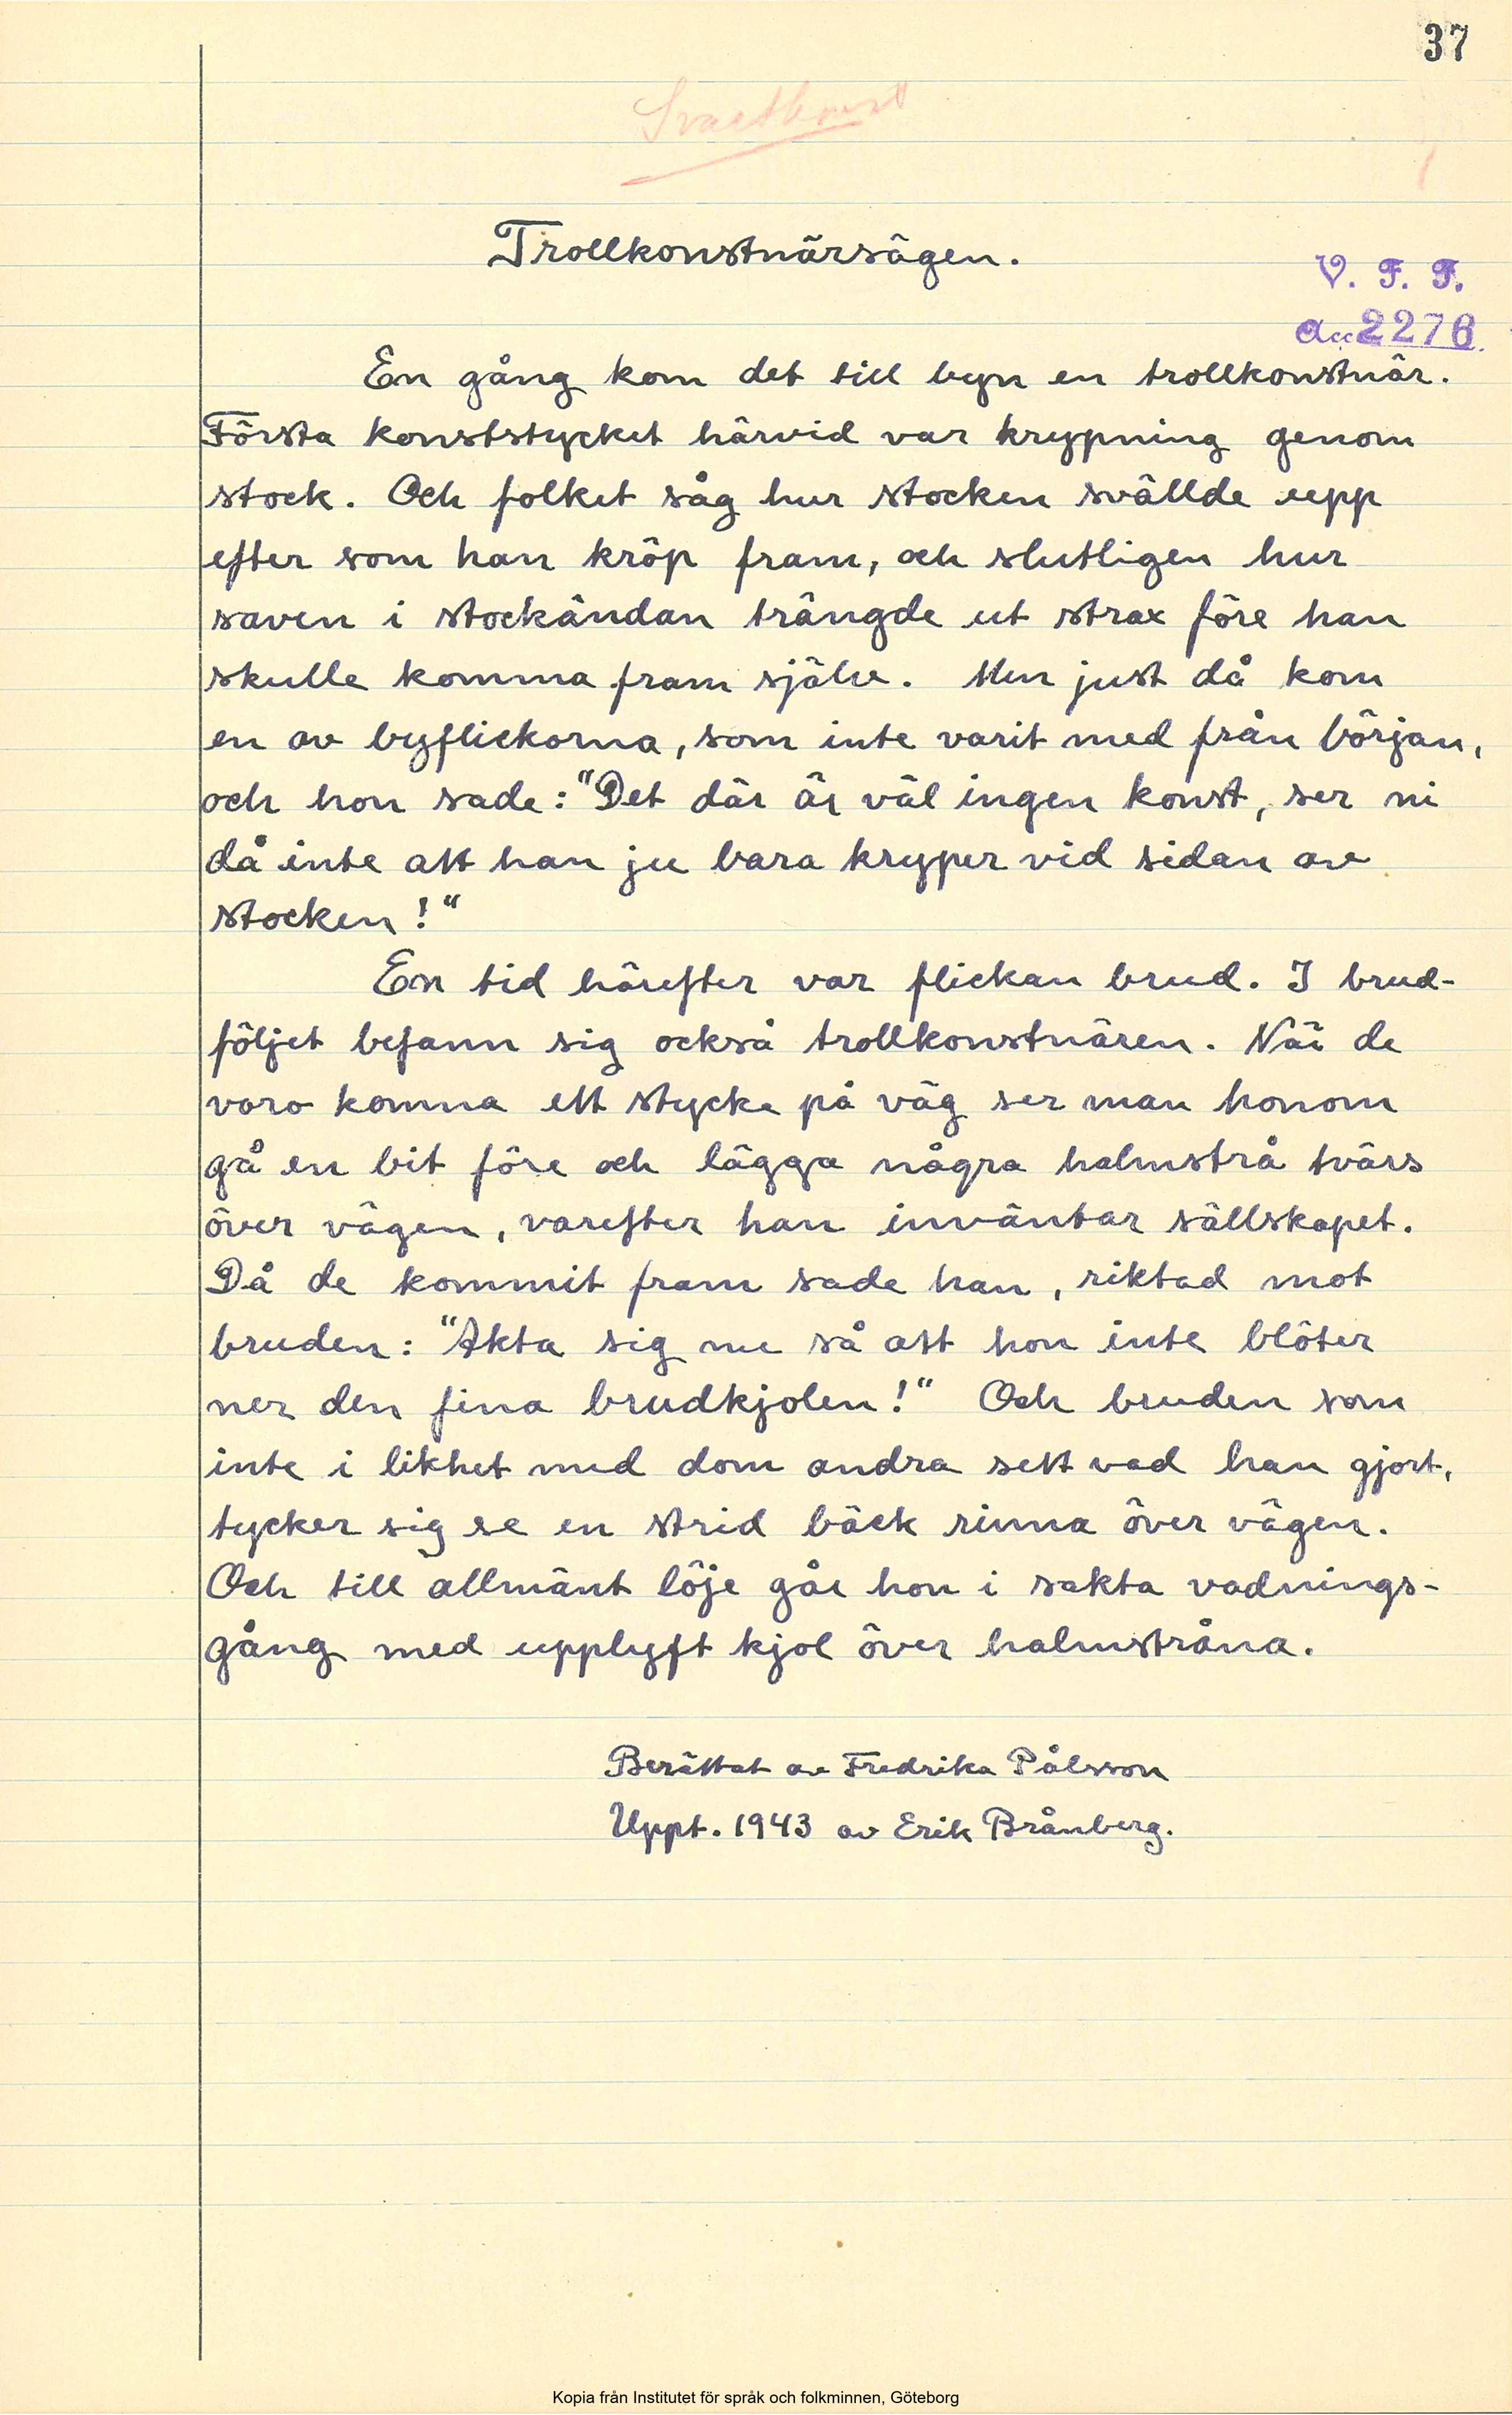 37
Svartkonst
Trollkonstnärsägen.
V. F. F.
Acc 2276
En gång kom det till byn en trollkonstnär.
Första konststycket härvid var krypning genom
stock. Och folket såg hur stocken svällde upp
efter som han kröp fram, och slutligen hur
saven i stockändan trängde ut strax före han
skulle komma fram själv. Men just då kom
en av byflickorna, som inte varit med från början,
och hon sade: "Det där är väl ingen konst, ser ni
då inte att han ju bara kryper vid sidan av
stocken!"
En tid härefter var flickan brud. I brud-
följet befann sig också trollkonstnären. När de
voro komna ett stycke på väg ser man honom
gå en bit före och lägga några halmstrå tvärs
över vägen, varefter han inväntar sällskapet.
Då de kommit fram sade han, riktad mot
bruden: "Akta sig nu så att hon inte blöter
ner den fina brudkjolen!" Och bruden som
inte i likhet med dom andra sett vad han gjort,
tycker sig se en strid bäck rinna över vägen.
Och till allmänt löje går hon i sakta vadnings-
gång med upplyft kjol över halmstråna.
Berättat av Fredrika Pålsson
Uppt. 1943 av Erik Brånberg.
Kopia från Institutet för språk och folkminnen, Göteborg